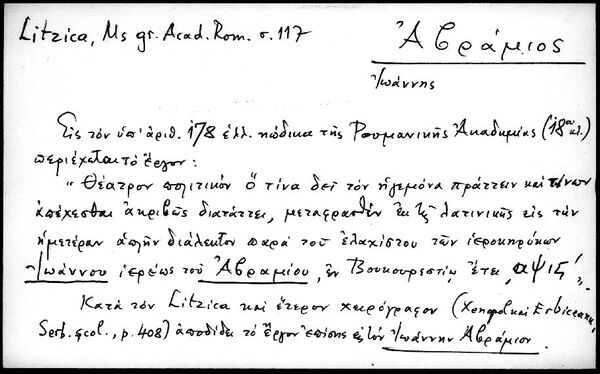 Litzica, Ms gr. Acad. Rom. σ. 117
Ἀβράμιος
Ἰωάννης
Εἰς τὸν ὑπ' ἀριθ. 178 ἑλλ. κώδικα τῆς Ρουμανικῆς Ἀκαδημίας (18ου αἰ.)
περιέχεται τὸ ἔργον:
"Θέατρον πολιτικὸν ὅ τίνα δεῖ τὸν ἡγεμόνα πράττειν καὶ τίνων
ἀπέχεσθαι ἀκριβῶς διατάττει, μεταφρασθὲν ἐκ τῆς λατινικῆς εἰς τὴν
ἡμετέραν ἁπλῆν διάλεκτον παρὰ τοῦ ἐλαχίστου τῶν ἱεροκηρύκων
Ἰωάννου ἱερέως τοῦ Ἀβραμίου, ἐν Βουκουρεστίῳ ἔτει, αψις΄".
Κατὰ τὸν Litzica καὶ ἕτερον χειρόγραφον (Xenopol καὶ Erbiceanu,
Serb. şcol., p. 408) ἀποδίδει τὸ ἔργον ἐπίσης εἰς τὸν Ἰωάννην Ἀβράμιον.